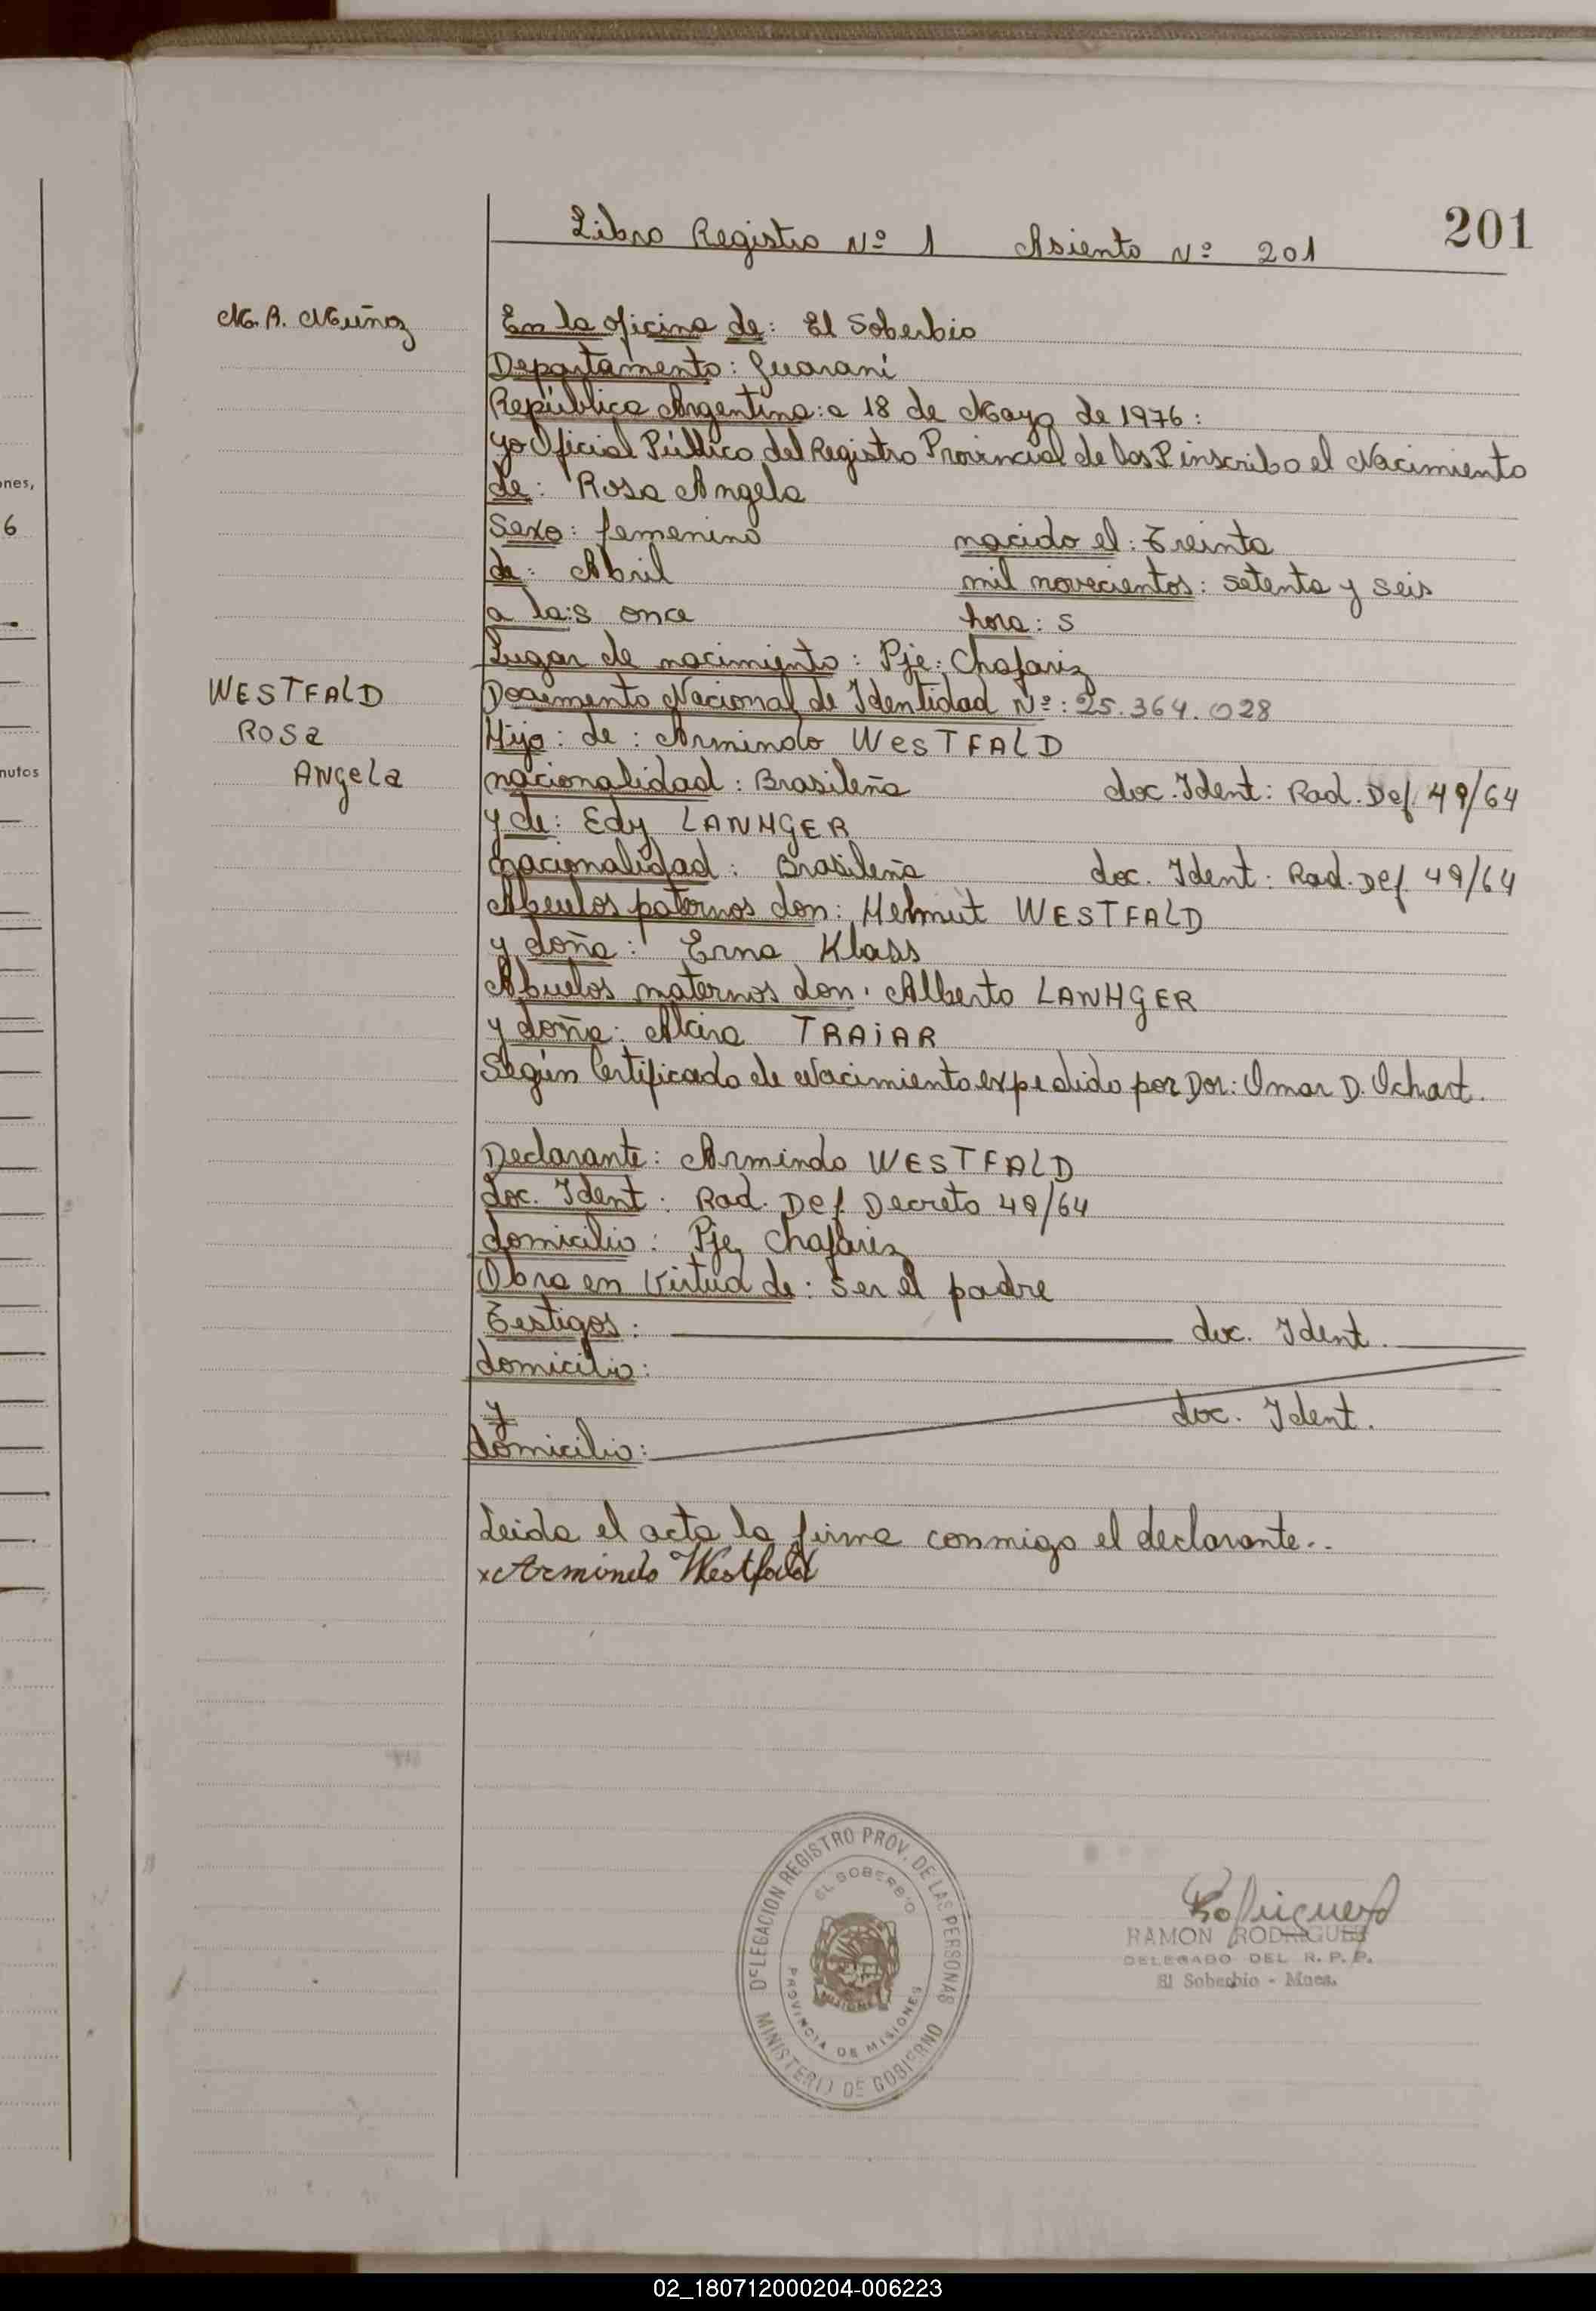 201
Libro Registro Nº 1 Asiento Nº 201
M. R. Muñoz
En la oficina de: El Soberbio
Departamento: Guaraní
República Argentina: a 18 de Mayo de 1976:
yo Oficial Público del Registro Provincial de las P inscribo el Nacimiento
de: Rosa Angela
Sexo: femenino nacido el: Treinta
de: Abril mil novecientos: setenta y seis
a la:s once hora: s
Lugar de nacimiento: Pje: Chafariz
WESTFALD
ROSA
ANGELA
Documento Nacional de Identidad Nº: 25.364.028
Hijo: de: Armindo WESTFALD
nacionalidad: Brasileña doc. Ident: Rad. Def. 49/64
y de: Edy LANHGER
nacionalidad: Brasileña doc. Ident: Rad. Def. 49/64
Abuelos paternos don: Helmut WESTFALD
y doña: Erna Klass
Abuelos maternos don: Alberto LANHGER
y doña: Alcira TRAIAR
Según Certificado de Nacimiento expedido por Dor: Omar D. Ochart.
Declarante: Armindo WESTFALD
doc. Ident: Rad. Def. Decreto 49/64
domicilio: Pje Chafariz
Obra en virtud de: Ser el padre
Testigos: doc. Ident.
domicilio:
y doc. Ident.
domicilio:
Leida el acta la firma conmigo el declarante..
x Armindo Westfald
DELEGACION REGISTRO PROV. DE LAS PERSONAS
MINISTERIO DE GOBIERNO
EL SOBERBIO
PROVINCIA DE MISIONES
MISIONES
Rodriguez
RAMON RODRIGUEZ
DELEGADO DEL R. P. P.
El Soberbio - Mnes.
ones,
6
nutos
02_180712000204-006223